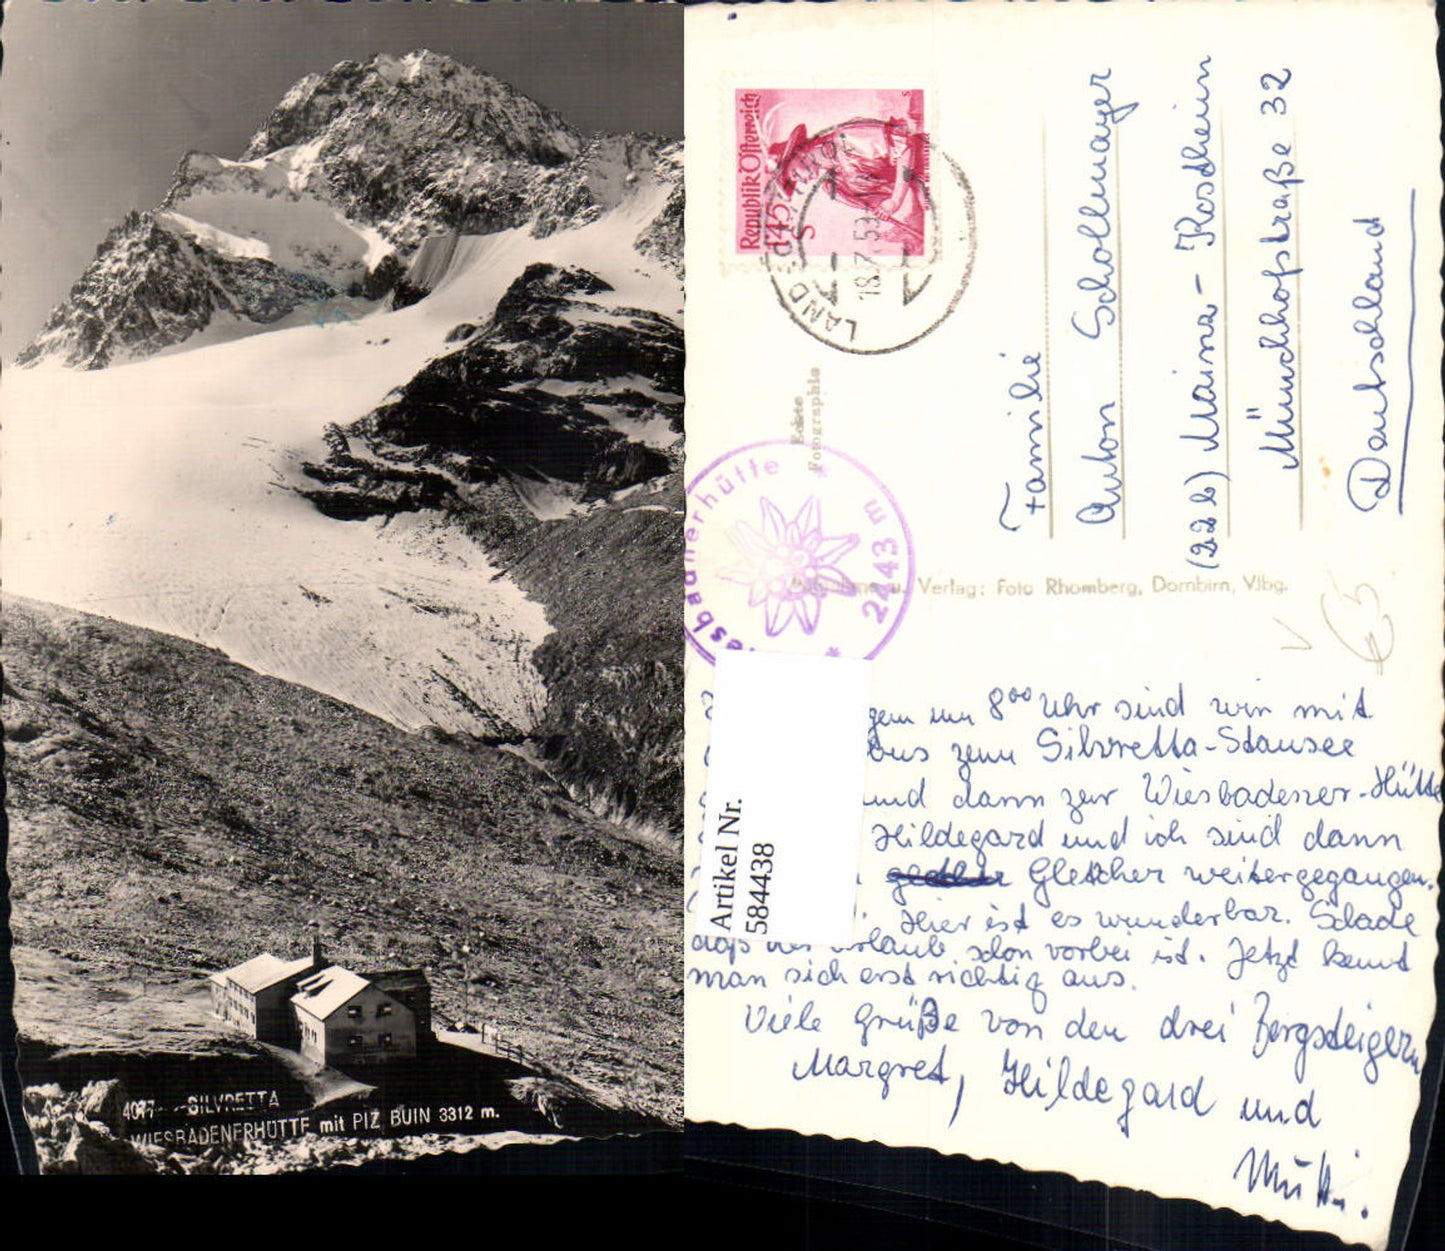 4077 SILVRETTA
WIESBADENERHÜTTE mit PIZ BUIN 3312 m.
Republik Österreich
1.45
S
LANDECK TIROL
18.7.53
Echte
Fotografie
Familie
Anton Schollmayer
(22b) Mainz-Kostheim
Münchhofstraße 32
Deutschland
esbadenerhütte * 2443 m *
u. Verlag: Foto Rhomberg, Dornbirn, Vlbg.
€5
gen um 8⁰⁰ Uhr sind wir mit
bus zum Silvretta-Stausee
und dann zur Wiesbadener-Hütte
Hildegard und ich sind dann
Gletscher weitergegangen.
Hier ist es wunderbar. Schade
daß der Urlaub schon vorbei ist. Jetzt kennt
man sich erst richtig aus.
Viele Grüße von den drei Bergsteigern
Margret, Hildegard und
Mutti.
Artikel Nr.
584438